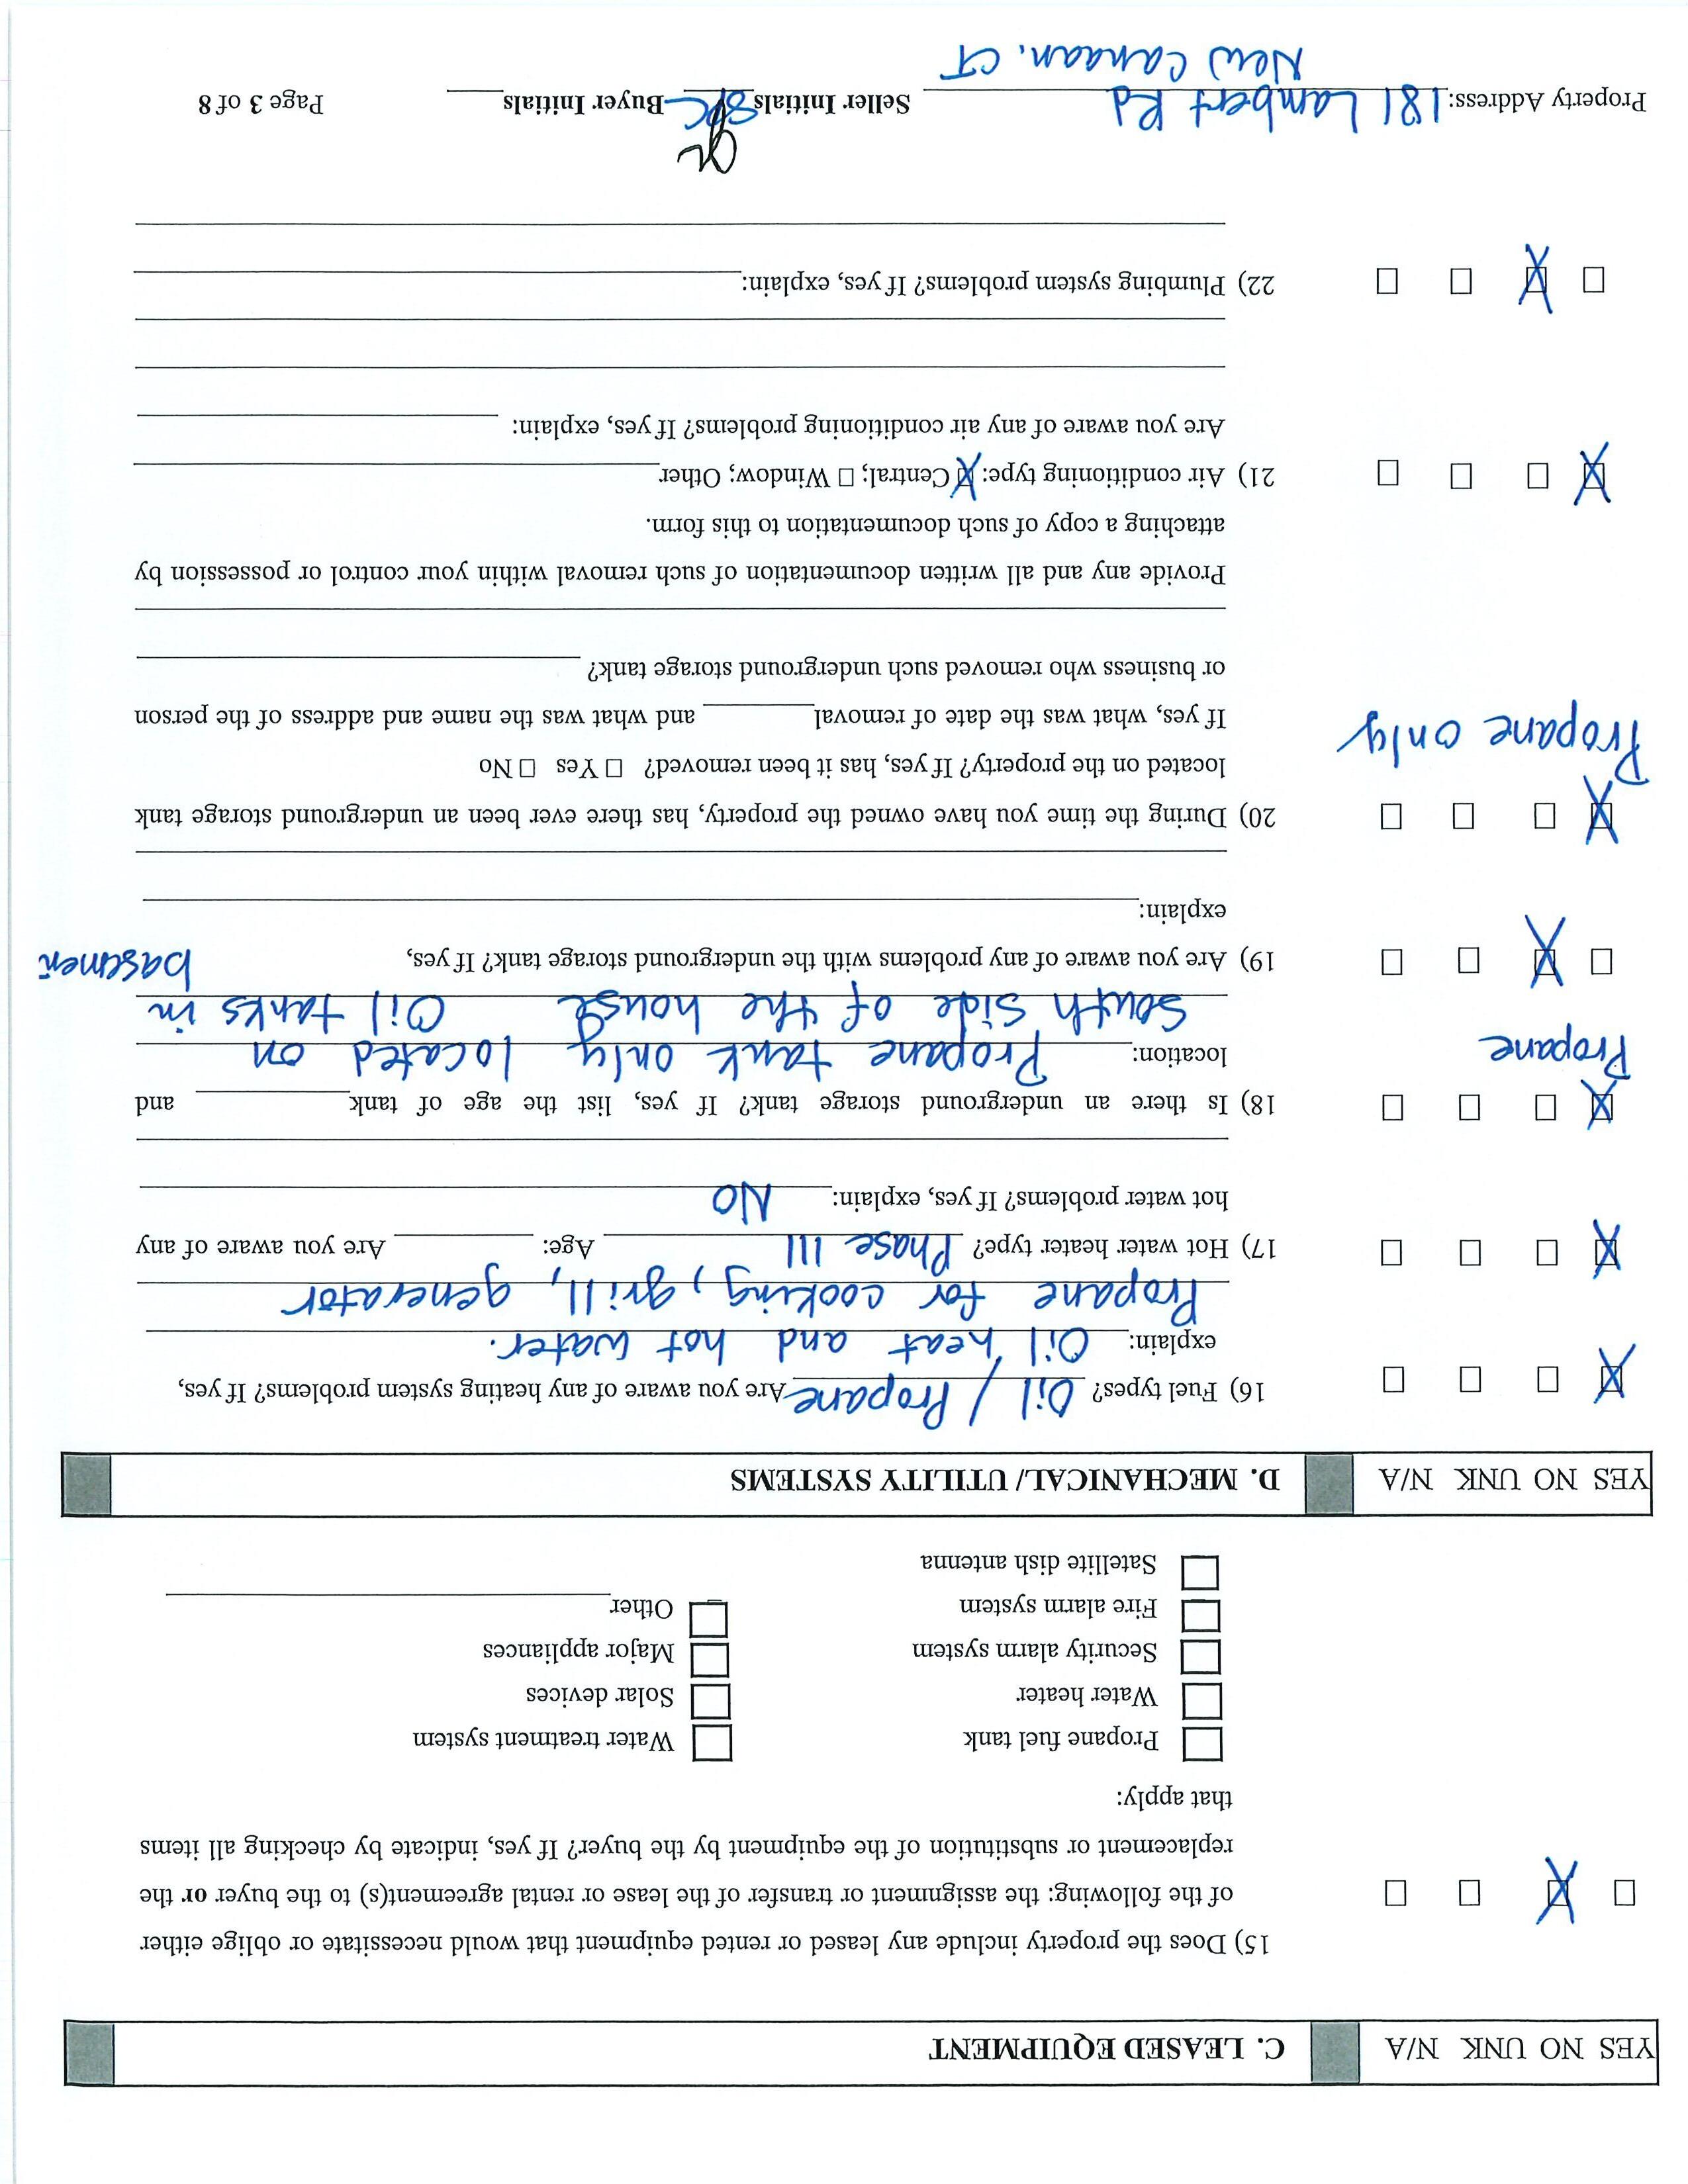 YES NO UNK N/A C. LEASED EQUIPMENT
15) Does the property include any leased or rented equipment that would necessitate or oblige either
of the following: the assignment or transfer of the lease or rental agreement(s) to the buyer or the
replacement or substitution of the equipment by the buyer? If yes, indicate by checking all items
that apply:
Propane fuel tank Water treatment system
Water heater Solar devices
Security alarm system Major appliances
Fire alarm system Other
Satellite dish antenna
YES NO UNK N/A D. MECHANICAL/ UTILITY SYSTEMS
16) Fuel types? Oil / Propane Are you aware of any heating system problems? If yes,
explain: Oil heat and hot water.
Propane for cooking, grill, generator
17) Hot water heater type? Phase III Age: Are you aware of any
hot water problems? If yes, explain: NO
18) Is there an underground storage tank? If yes, list the age of tank and
Propane
location: Propane tank only located on
south side of the house Oil tanks in
basement
19) Are you aware of any problems with the underground storage tank? If yes,
explain:
20) During the time you have owned the property, has there ever been an underground storage tank
Propane only
located on the property? If yes, has it been removed? ☐ Yes ☐ No
If yes, what was the date of removal and what was the name and address of the person
or business who removed such underground storage tank?
Provide any and all written documentation of such removal within your control or possession by
attaching a copy of such documentation to this form.
21) Air conditioning type: ☒ Central; ☐ Window; Other
Are you aware of any air conditioning problems? If yes, explain:
22) Plumbing system problems? If yes, explain:
Property Address: 181 Lambert Rd Seller Initials Buyer Initials Page 3 of 8
New Canaan, CT